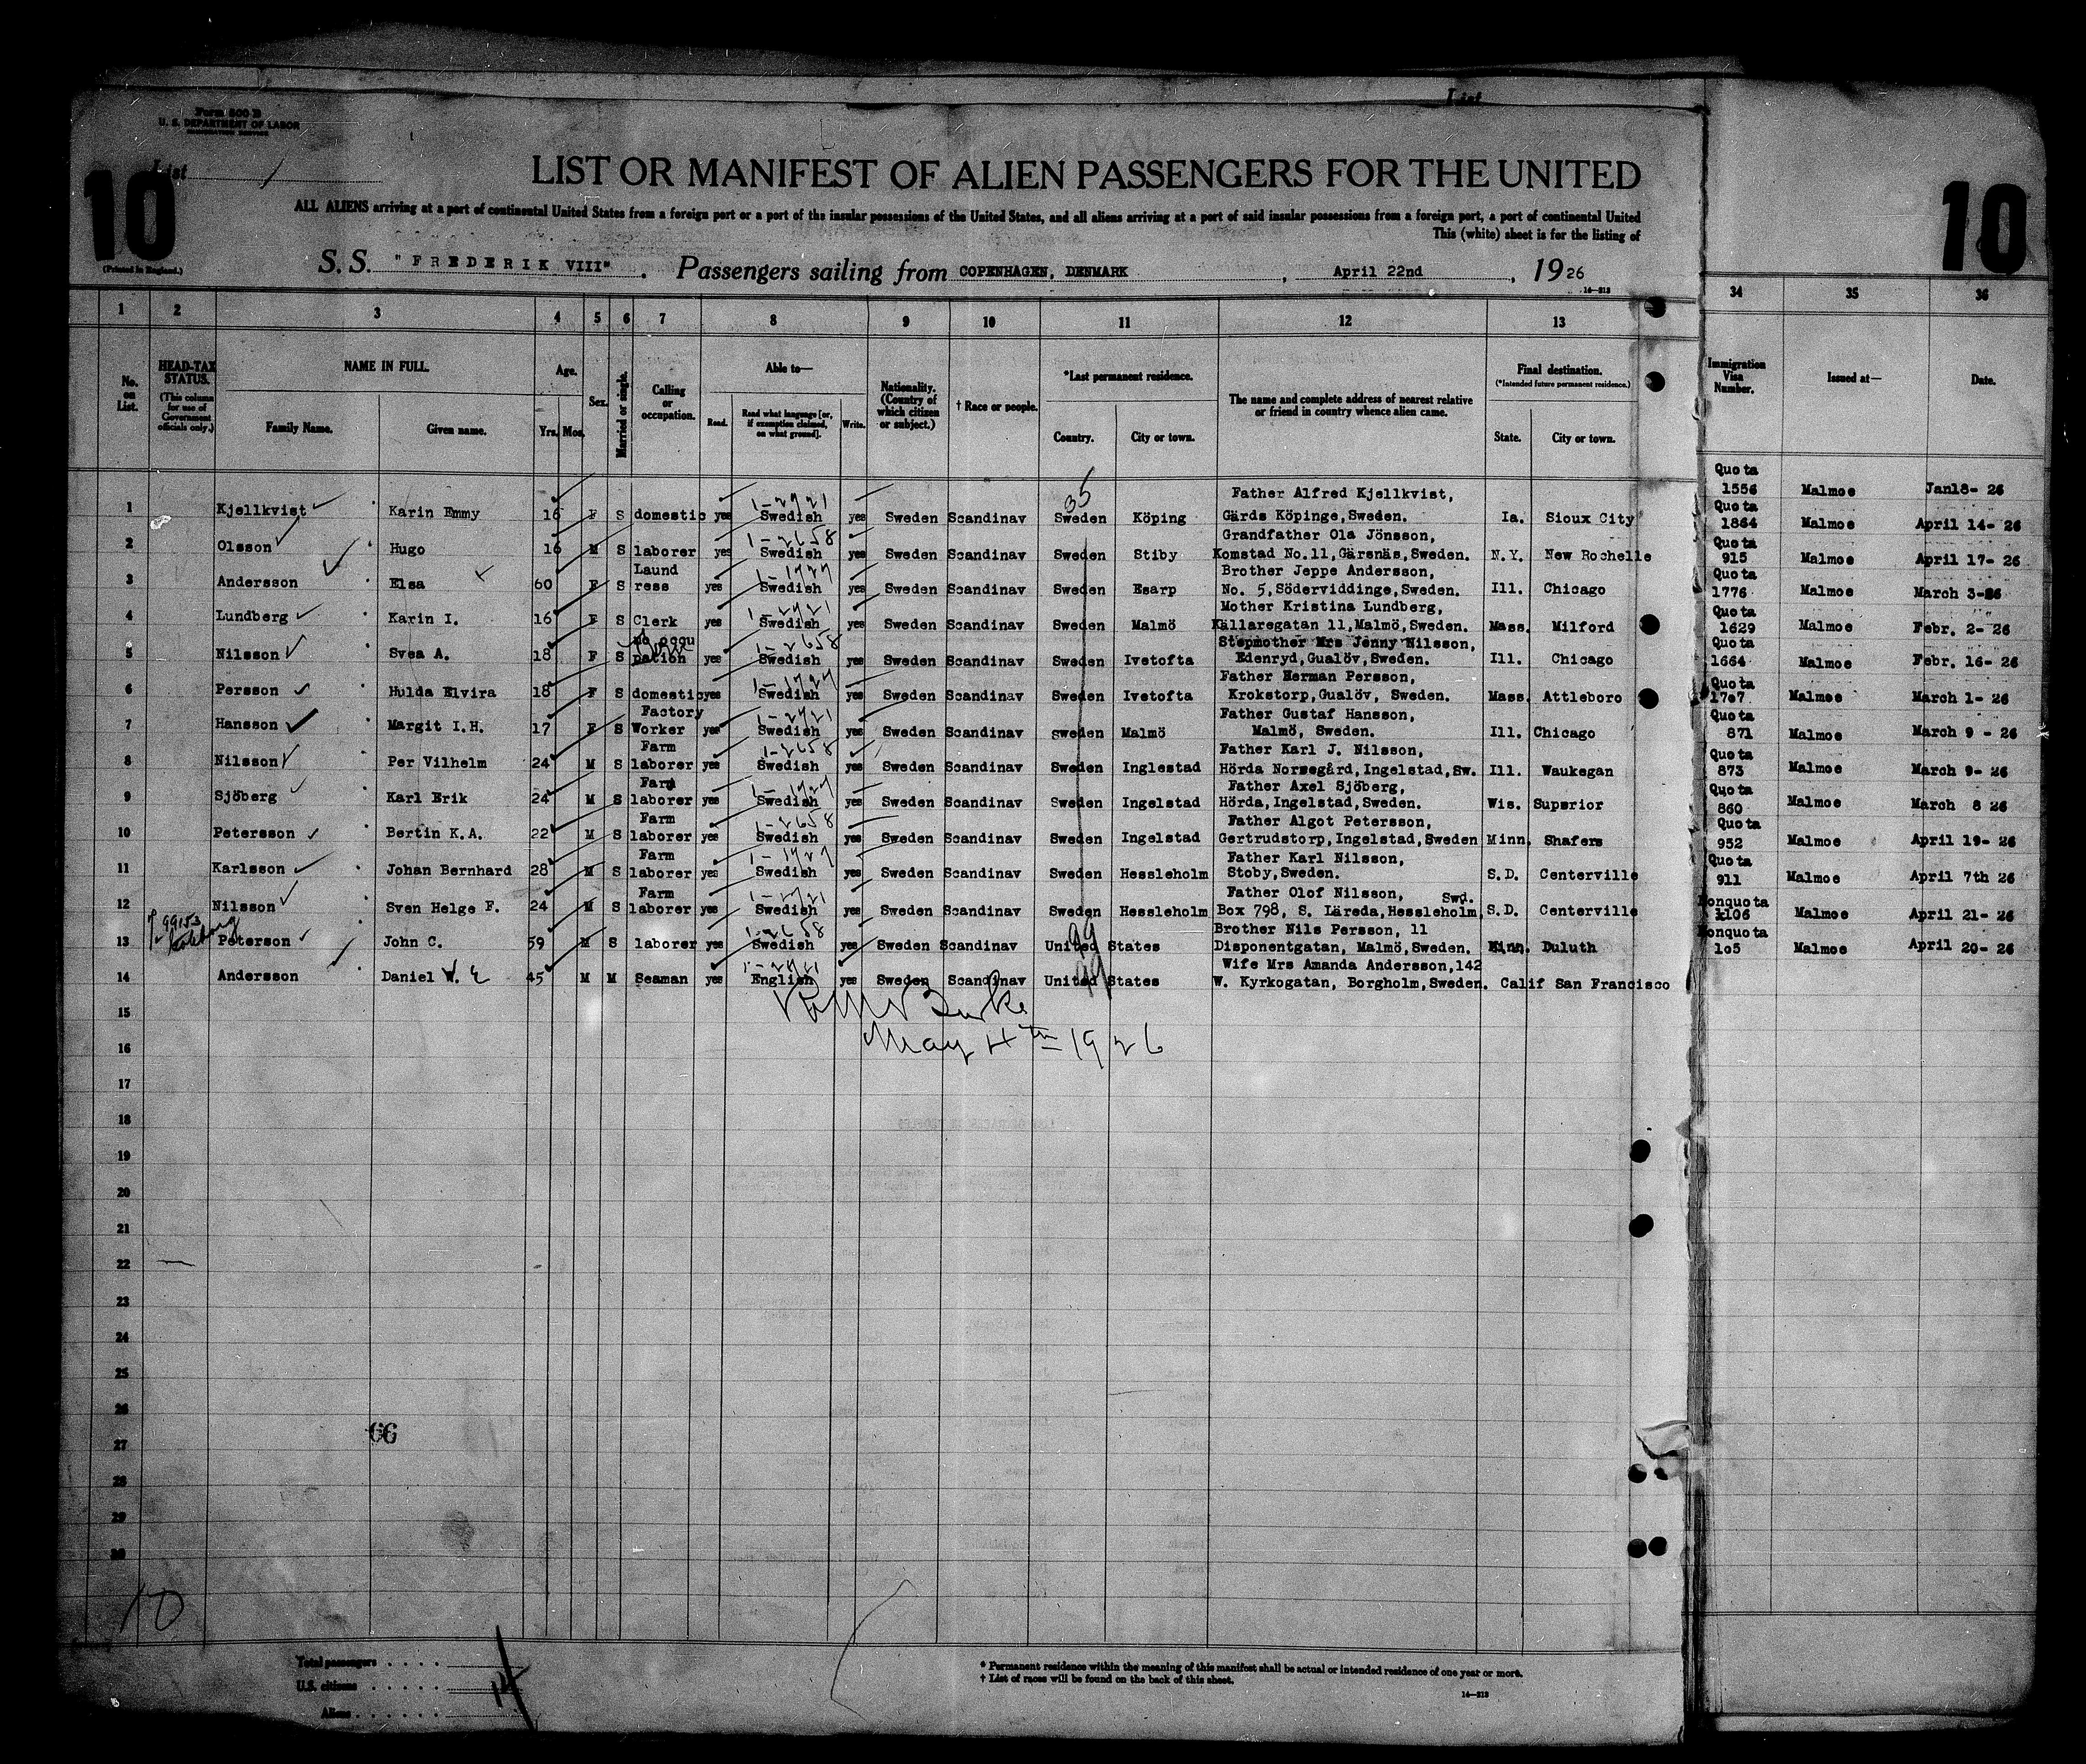 List
Form 500 B
U. S. DEPARTMENT OF LABOR
IMMIGRATION SERVICE
List
10
10
LIST OR MANIFEST OF ALIEN PASSENGERS FOR THE UNITED
ALL ALIENS arriving at a port of continental United States from a foreign port or a port of the insular possessions of the United States, and all aliens arriving at a port of said insular possessions from a foreign port, a port of continental United
This (white) sheet is for the listing of
(Printed in England.)
S. S. "FREDERIK VIII". Passengers sailing from COPENHAGEN, DENMARK, April 22nd, 1926
14-213
1 2 3 4 5 6 7 8 9 10 11 12 13 34 35 36
No. on List.
HEAD-TAX STATUS. (This column for use of Government officials only.)
NAME IN FULL.
Family Name. Given name.
Age.
Yrs. Mos.
Sex.
Married or single.
Calling or occupation.
Able to—
Read. Read what language [or, if exemption claimed, on what ground]. Write.
Nationality. (Country of which citizen or subject.)
† Race or people.
*Last permanent residence.
Country. City or town.
The name and complete address of nearest relative or friend in country whence alien came.
Final destination.
(*Intended future permanent residence.)
State. City or town.
Immigration Visa Number.
Issued at—
Date.
35
1 Kjellkvist Karin Emmy 16 F S domestic yes 1-2921 Swedish yes Sweden Scandinav Sweden Köping Father Alfred Kjellkvist, Gärds Köpinge,Sweden. Ia. Sioux City Quota 1556 Malmoe Jan18- 26
2 Olsson Hugo 16 M S laborer yes 1-2658 Swedish yes Sweden Scandinav Sweden Stiby Grandfather Ola Jönsson, Komstad No.11,Gärsnäs,Sweden. N.Y. New Rochelle Quota 1864 Malmoe April 14- 26
3 Andersson Elsa 60 F S Laundress yes Swedish yes Sweden Scandinav Sweden Esarp Brother Jeppe Andersson, No. 5,Söderviddinge,Sweden. Ill. Chicago Quota 915 Malmoe April 17- 26
4 Lundberg Karin I. 16 F S Clerk yes 1-2921 Swedish yes Sweden Scandinav Sweden Malmö Mother Kristina Lundberg, Källaregatan 11,Malmö,Sweden. Mass. Milford Quota 1776 Malmoe March 3-26
5 Nilsson Svea A. 18 F S no occupation yes 1-2658 Swedish yes Sweden Scandinav Sweden Ivetofta Stepmother Mrs Jenny Nilsson, Edenryd,Gualöv,Sweden. Ill. Chicago Quota 1629 Malmoe Febr. 2- 26
6 Persson Hulda Elvira 18 F S domestic yes Swedish yes Sweden Scandinav Sweden Ivetofta Father Herman Persson, Krokstorp,Gualöv, Sweden. Mass. Attleboro Quota 1664 Malmoe Febr. 16- 26
7 Hansson Margit I.H. 17 F S Factory Worker yes 1-2921 Swedish yes Sweden Scandinav sweden Malmö Father Gustaf Hansson, Malmö, Sweden. Ill. Chicago Quota 1707 Malmoe March 1- 26
8 Nilsson Per Vilhelm 24 M S Farm laborer yes 1-2658 Swedish yes Sweden Scandinav Sweden Inglestad Father Karl J. Nilsson, Hörda Norregård,Ingelstad,Sw. Ill. Waukegan Quota 871 Malmoe March 9 - 26
9 Sjöberg Karl Erik 24 M S Farm laborer yes Swedish yes Sweden Scandinav Sweden Ingelstad Father Axel Sjöberg, Hörda,Ingelstad,Sweden. Wis. Superior Quota 873 Malmoe March 9- 26
10 Petersson Bertin K.A. 22 M S Farm laborer yes 1-2658 Swedish yes Sweden Scandinav Sweden Ingelstad Father Algot Petersson, Gertrudstorp,Ingelstad,Sweden Minn. Shafers Quota 860 Malmoe March 8 26
11 Karlsson Johan Bernhard 28 M S Farm laborer yes Swedish yes Sweden Scandinav Sweden Hessleholm Father Karl Nilsson, Stoby,Sweden. S.D. Centerville Quota 952 Malmoe April 19- 26
12 Nilsson Sven Helge F. 24 M S Farm laborer yes Swedish yes Sweden Scandinav Sweden Hessleholm Father Olof Nilsson, Box 798, S. Läreda,Hessleholm, Swd. S.D. Centerville Quota 911 Malmoe April 7th 26
13 Peterson John C. 59 M S laborer yes 1-2658 Swedish yes Sweden Scandinav United States Brother Nils Persson, 11 Disponentgatan, Malmö,Sweden. Minn. Duluth Nonquota 106 Malmoe April 21- 26
14 Andersson Daniel W. E 45 M M Seaman yes 1-2921 English yes Sweden Scandinav United States Wife Mrs Amanda Andersson,142 W. Kyrkogatan, Borgholm,Sweden. Calif San Francisco Nonquota 105 Malmoe April 20- 26
99
99
May 4th 1926
15
16
17
18
19
20
21
22
23
24
25
26
27
28
29
30
66
10
Total passengers
U.S. citizens
Aliens
14
* Permanent residence within the meaning of this manifest shall be actual or intended residence of one year or more.
† List of races will be found on the back of this sheet.
14-213